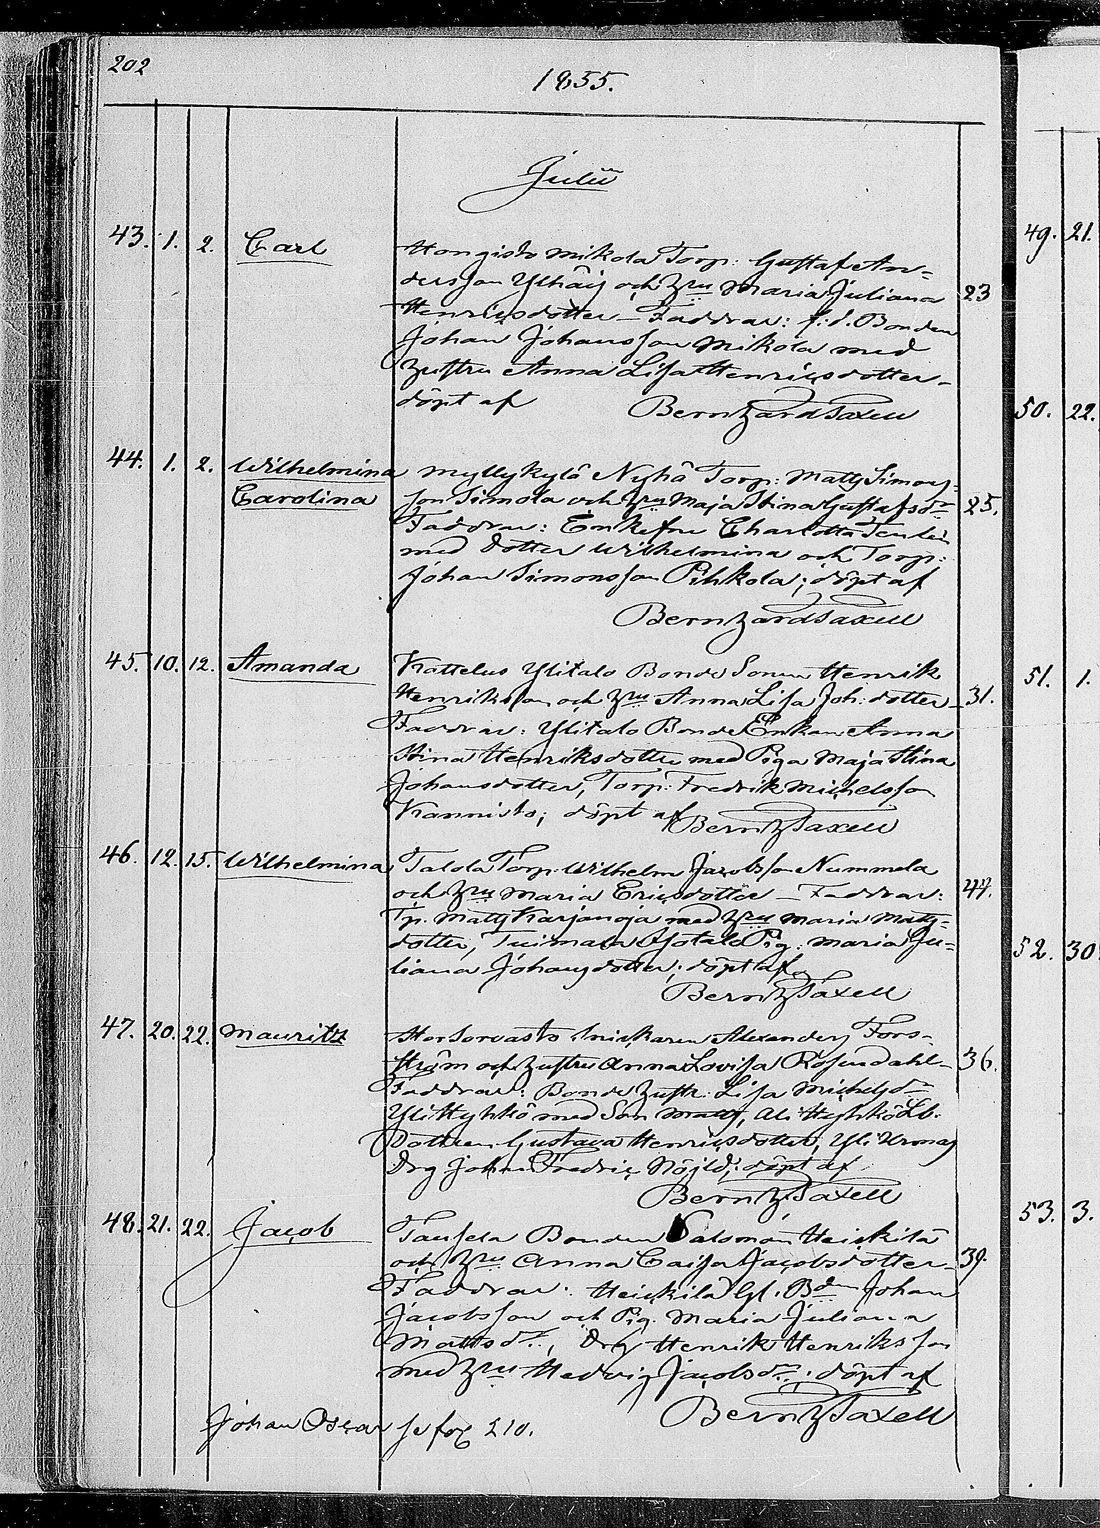 202
1855.
Julii
43. 1. 2. Carl
Hongisto Mikola Torp: Gustaf An-
dersson Ylhäij och Hru Maria Juliana 23
Henricsdotter _ Faddrar: f.d. Bonden
Johan Johansson Mikola med
hustru Anna Lisa Henricsdotter _
döpt af Bernhard Taxell
44. 1. 2. Wilhelmina Myllykylä Nyhä Torp: Matts Simons-
Carolina son Simola och Hru Maja Stina Gustafsdr 25.
Faddrar: Enkefru Charlotta
med dotter Wilhelmina och Torp:
Johan Simonsson Pihkola; döpt af
Bernhard Taxell
45. 10. 12. Amanda Kattelus Ylitalo Bonde Sonen Henrik
Henriksson och Hru Anna Lisa Joh: dotter _ 31.
Faddrar: Ylitalo Bonde Enkan Anna
Stina Henriksdotter med Piga Maja Stina
Johansdotter, Torp: Fredrik Michelsson
Kannisto; döpt af Bernh Taxell
46. 12. 15. Wilhelmina Talola Torp: Wilhelm Jacobsson Nummela
och Hru Maria Ericsdotter _ Faddrar: 44.
Tp. Matts Karjanoja med Hru Maria Matts-
dotter, Pig: Maria Ju-
liana Johansdotter; döpt af
Bernh Taxell
47. 20. 22. Mauritz Snickaren Alexander Fors-
ström och hustru Anna Lovisa Rosendahl _ 36.
Faddrar: Bonde hustr: Lisa Michelsdr
Yli Hyhkö med Son Matts, Ali Hyhkö Lb.
Dottren Gustava Henricsdotter, Yli Urmas
Drg Johan Fredric Nöjd; döpt af
Bernh Taxell
48. 21. 22. Jacob Bonden Salomon Heickilä
och Hru Anna Caisa Jacobsdotter _ 39.
Faddrar: Heickilä Gl. Bden Johan
Jacobsson och Pig. Maria Juliana
Mattsdr., Drg Henrik Henriksson
med Hru Hedvig Jacobsdr; döpt af
Bernh Taxell
Johan Oscar se fog 210.
49. 21.
50. 22.
51. 1.
52. 30.
53. 3.